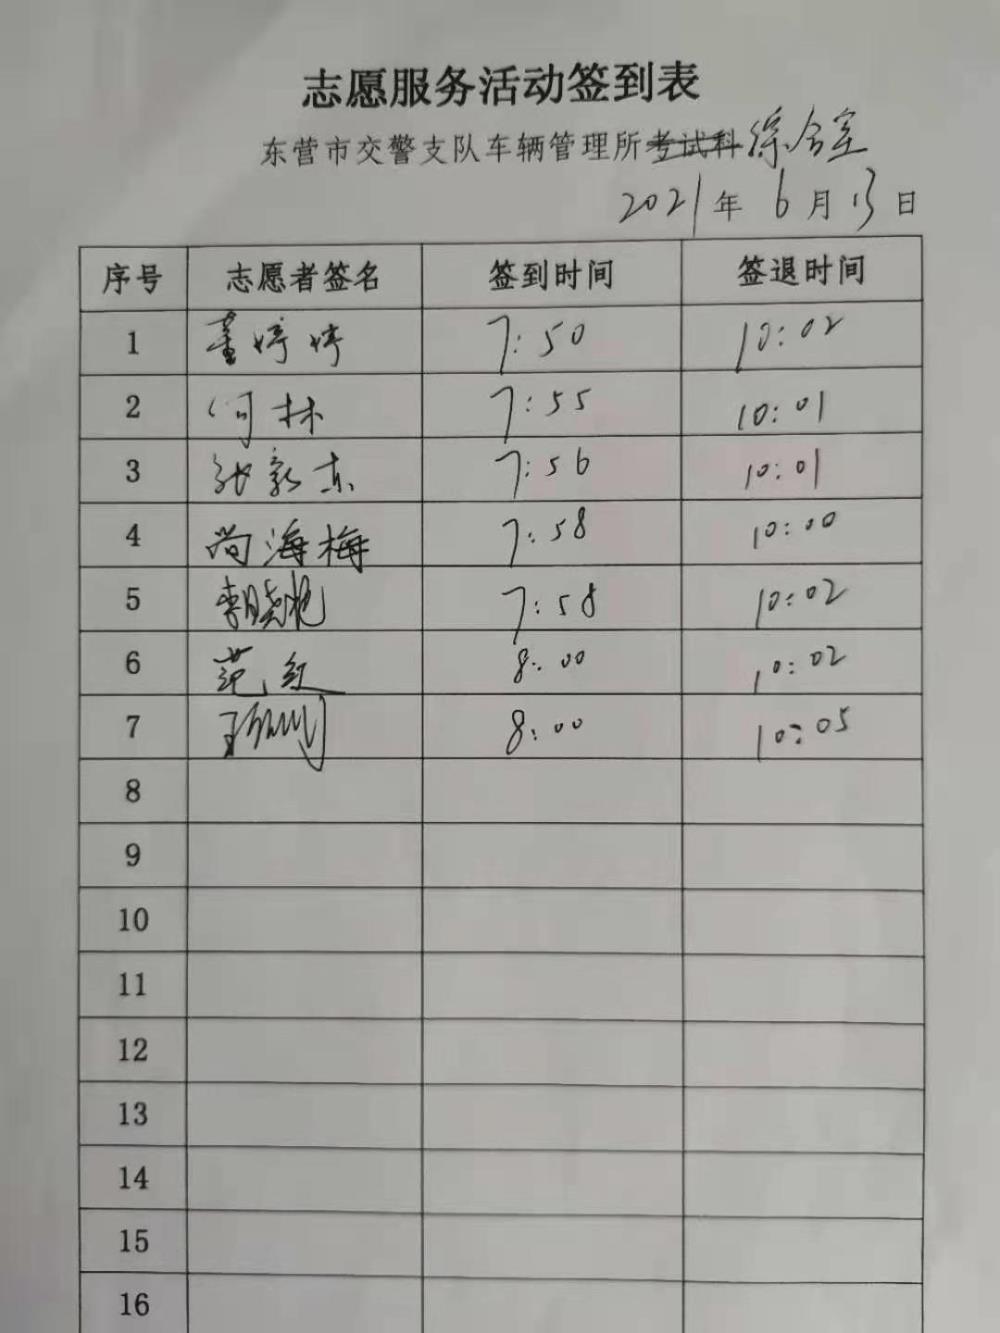 志愿服务活动签到表
东营市交警支队车辆管理所考试科综合室
2021年6月13日
序号 志愿者签名 签到时间 签退时间
1 董婷婷 7:50 10:02
2 何林 7:55 10:01
3 张新东 7:56 10:01
4 尚海梅 7:58 10:00
5 李晓艳 7:58 10:02
6 范红 8:00 10:02
7 8:00 10:05
8
9
10
11
12
13
14
15
16